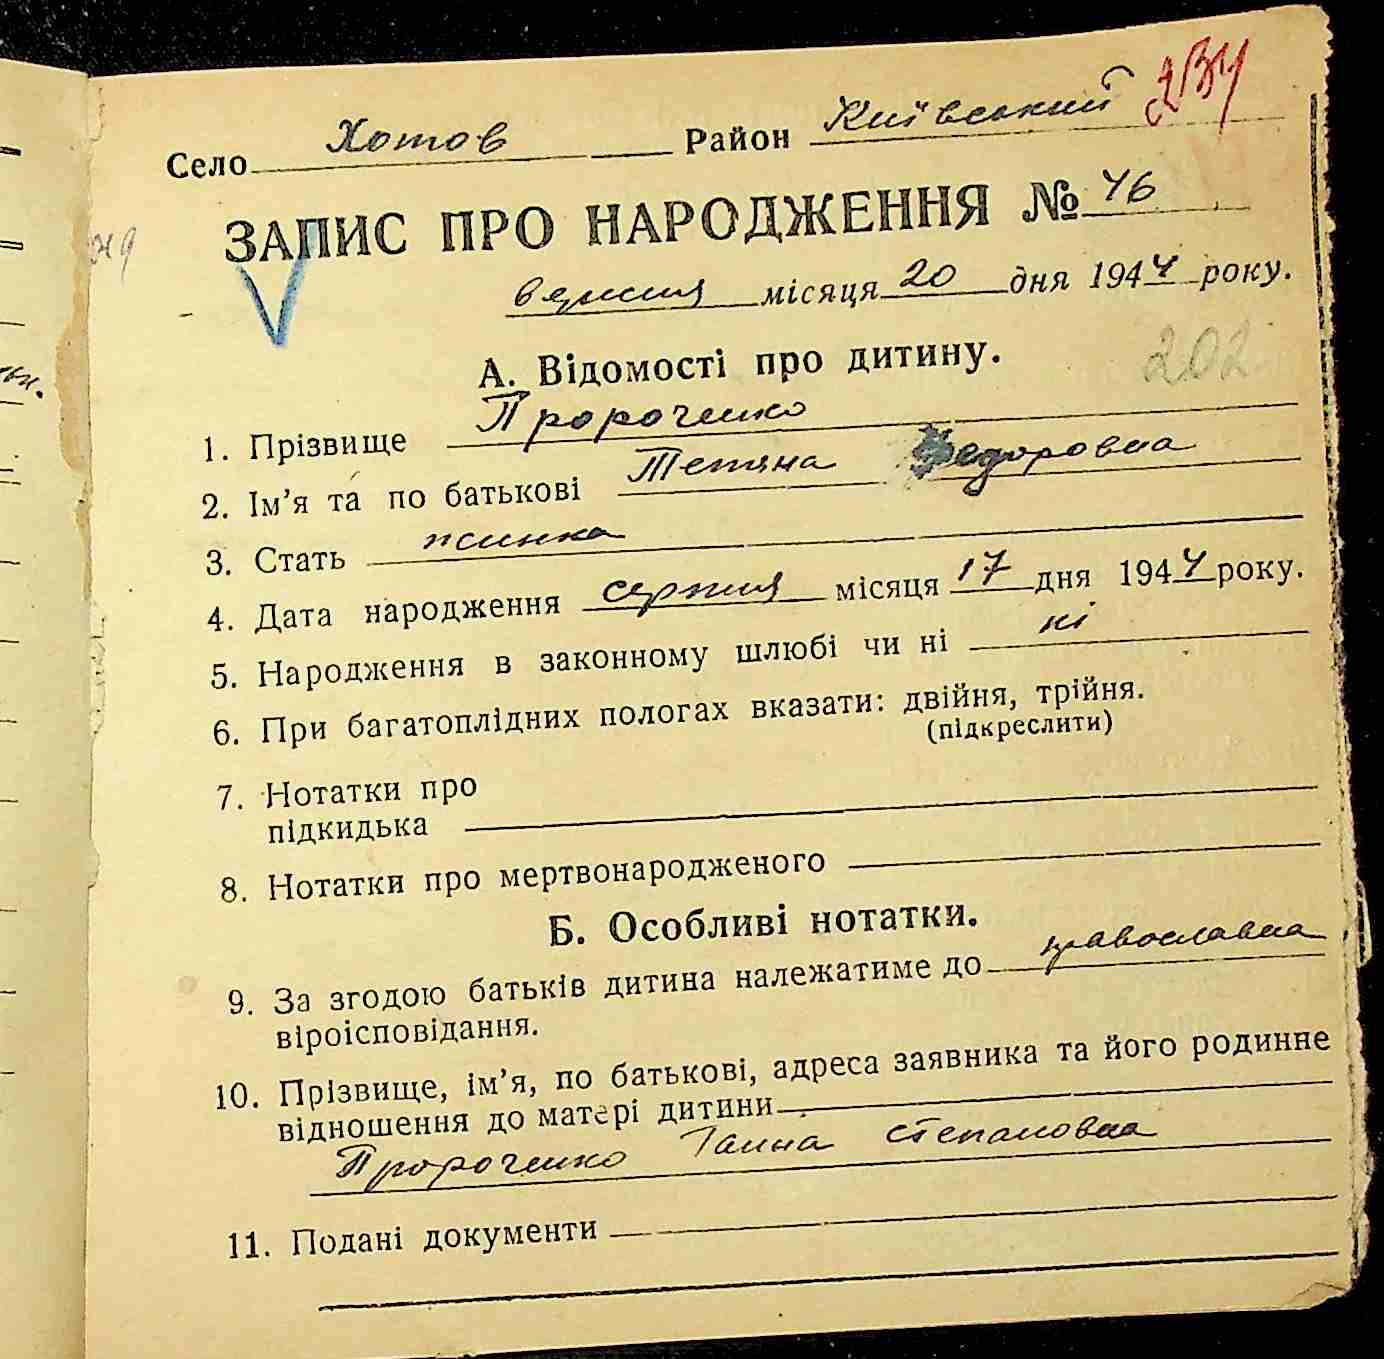 Село Хотов Район Київський
ЗАПИС ПРО НАРОДЖЕННЯ № 46
вересня місяця 20 дня 1944 року.
202
А. Відомості про дитину.
1. Прізвище Пророченко
2. Ім’я та по батькові Тетяна Федоровна
3. Стать жинка
4. Дата народження серпня місяця 17 дня 1944 року.
5. Народження в законному шлюбі чи ні ні
6. При багатоплідних пологах вказати: двійня, трійня.
(підкреслити)
7. Нотатки про
підкидька
8. Нотатки про мертвонародженого
Б. Особливі нотатки.
9. За згодою батьків дитина належатиме до православна
віроісповідання.
10. Прізвище, ім’я, по батькові, адреса заявника та його родинне
відношення до матері дитини
Пророченко Ганна Степановна
11. Подані документи